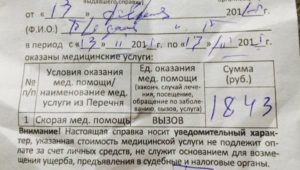 выдавшего справку)
от « 13 » февраля 201
(Ф.И.О.)
в период с « 13 » II 201 г. по « 13 » II 201 г.
оказаны медицинские услуги:
№ п/п
Условия оказания мед. помощи/ наименование мед. услуги из Перечня
Ед. оказания мед. помощи (закон. случай лечения, посещение, обращение по заболеванию, вызов, услуга)
Сумма (руб.)
1 Скорая мед. помощь ВЫЗОВ 1843
Внимание! Настоящая справка носит уведомительный харак-
тер, указанная стоимость медицинской услуги не подлежит оп-
лате за счет личных средств, не служит основанием для возме-
щения ущерба, предъявления в судебные и налоговые органы.